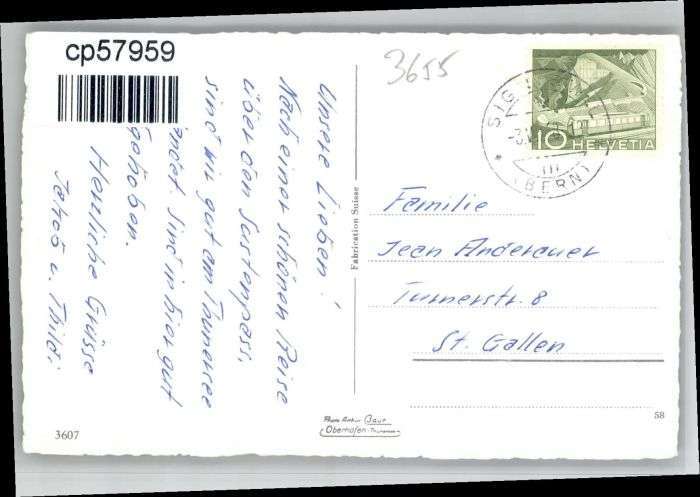 cp57959
3655
SIG
(BERN)
III
10 HELVETIA
Unsere Lieben!
Nach einer schönen Reise
über den Sustenpass,
sind wir gut am Thunersee
sind hier gut
gehoben.
Herzliche Grüsse
u. Thildi.
Fabrication Suisse
Familie
Jean Anderauer
Turnerstr. 8
St. Gallen
Photo Arthur Baur
Oberhofen-Thunersee
3607
58